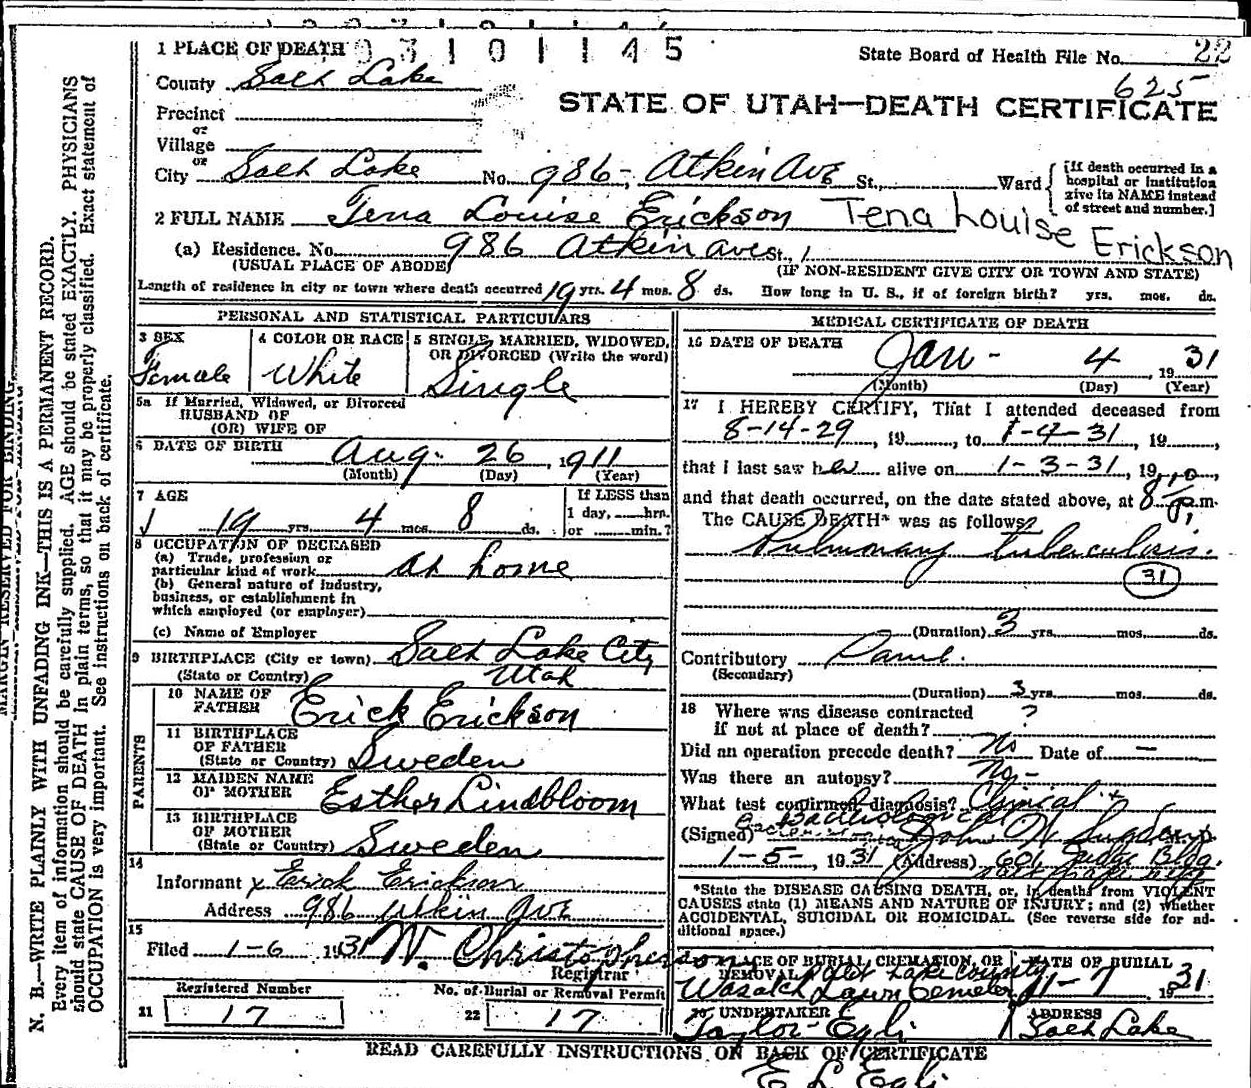 1 PLACE OF DEATH 0 3 1 0 1 1 4 5 State Board of Health File No. 22
County Salt Lake 625
STATE OF UTAH—DEATH CERTIFICATE
Precinct
or
Village
or
City Salt Lake No. 986- Atkin Ave St., Ward
[If death occurred in a
hospital or institution
give its NAME instead
of street and number.]
2 FULL NAME Tena Louise Erickson Tena Louise Erickson
(a) Residence. No. 986 Atkin ave St.,
(USUAL PLACE OF ABODE) (IF NON-RESIDENT GIVE CITY OR TOWN AND STATE)
Length of residence in city or town where death occurred 19 yrs. 4 mos. 8 ds. How long in U. S., if of foreign birth? yrs. mos. ds.
PERSONAL AND STATISTICAL PARTICULARS
3 SEX 4 COLOR OR RACE 5 SINGLE, MARRIED, WIDOWED,
OR DIVORCED (Write the word)
Female White Single
5a If Married, Widowed, or Divorced
HUSBAND OF
(OR) WIFE OF
6 DATE OF BIRTH Aug. 26, 1911
(Month) (Day) (Year)
7 AGE If LESS than
1 day, hrs.
19 yrs. 4 mos. 8 ds. or min.?
8 OCCUPATION OF DECEASED
(a) Trade, profession or
particular kind of work at home
(b) General nature of Industry,
business, or establishment in
which employed (or employer)
(c) Name of Employer
9 BIRTHPLACE (City or town) Salt Lake City
(State or Country) Utah
PARENTS
10 NAME OF
FATHER Erick Erickson
11 BIRTHPLACE
OF FATHER
(State or Country) Sweden
12 MAIDEN NAME
OF MOTHER Esther Lindbloom
13 BIRTHPLACE
OF MOTHER
(State or Country) Sweden
14
Informant x Erick Erickson
Address 986 Atkin Ave
15
Filed 1-6 1931 W. Christopherson
Registrar
Registered Number No. of Burial or Removal Permit
21 17 22 17
MEDICAL CERTIFICATE OF DEATH
16 DATE OF DEATH
Jan - 4, 1931
(Month) (Day) (Year)
17 I HEREBY CERTIFY, That I attended deceased from
8-14-29, 19, to 1-4-31, 19,
that I last saw her alive on 1-3-31, 19,
and that death occurred, on the date stated above, at 8 p.m.
The CAUSE DEATH* was as follows?
Pulmonary tuberculosis.
31
(Duration) 3 yrs. mos. ds.
Contributory Same.
(Secondary)
(Duration) 3 yrs. mos. ds.
18 Where was disease contracted
if not at place of death? ?
Did an operation precede death? No Date of —
Was there an autopsy? No -
What test confirmed diagnosis? Clinical +
(Signed) John H
1-5-, 1931 (Address) 601 Judge Bldg.
*State the DISEASE CAUSING DEATH, or, in deaths from VIOLENT
CAUSES state (1) MEANS AND NATURE OF INJURY; and (2) whether
ACCIDENTAL, SUICIDAL OR HOMICIDAL. (See reverse side for ad-
ditional space.)
PLACE OF BURIAL, CREMATION, OR DATE OF BURIAL
REMOVAL Salt Lake County
Wasatch Lawn Cemetery 1-7 1931
20 UNDERTAKER ADDRESS
Taylor-Egli Salt Lake
READ CAREFULLY INSTRUCTIONS ON BACK OF CERTIFICATE
E L Egli
MARGIN RESERVED FOR BINDING
N. B.—WRITE PLAINLY WITH UNFADING INK—THIS IS A PERMANENT RECORD.
Every item of information should be carefully supplied. AGE should be stated EXACTLY. PHYSICIANS
should state CAUSE OF DEATH in plain terms, so that it may be properly classified. Exact statement of
OCCUPATION is very important. See instructions on back of certificate.